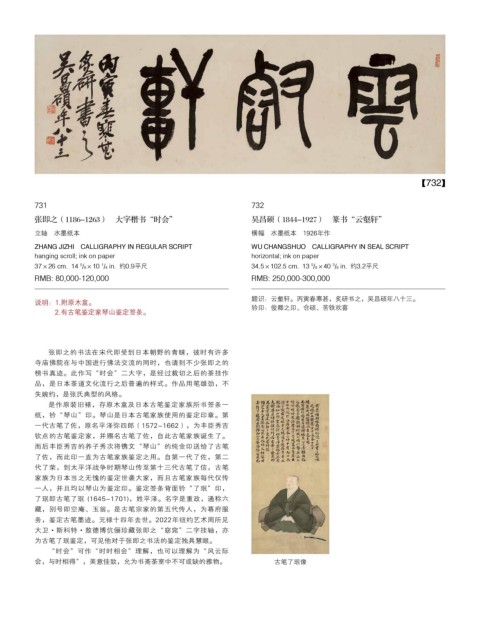 雲壑軒
丙寅春寒甚
炙研書之
吴昌碩年八十三
【732】
731
张即之（1186-1263） 大字楷书“时会”
立轴 水墨纸本
ZHANG JIZHI CALLIGRAPHY IN REGULAR SCRIPT
hanging scroll; ink on paper
37 × 26 cm. 14 5/8 × 10 1/4 in. 约0.9平尺
RMB: 80,000-120,000
说明：1.附原木盒。
2.有古笔鉴定家琴山鉴定签条。
732
吴昌硕（1844-1927） 篆书“云壑轩”
横幅 水墨纸本 1926年作
WU CHANGSHUO CALLIGRAPHY IN SEAL SCRIPT
horizontal; ink on paper
34.5 × 102.5 cm. 13 5/8 × 40 3/8 in. 约3.2平尺
RMB: 250,000-300,000
题识：云壑轩。丙寅春寒甚，炙研书之，吴昌硕年八十三。
钤印：俊卿之印、仓硕、苦铁欢喜
张即之的书法在宋代即受到日本朝野的青睐，彼时有许多
寺庙佛院在与中国进行佛法交流的同时，也请到不少张即之的
榜书真迹。此作写“时会”二大字，是经过裁切之后的茶挂作
品，是日本茶道文化流行之后普遍的样式。作品用笔雄劲，不
失婉约，是张氏典型的风格。
是作原装旧裱，存原木盒及日本古笔鉴定家族所书签条一
纸，钤“琴山”印。琴山是日本古笔家族使用的鉴定印章。第
一代古笔了佐，原名平泽弥四郎（1572-1662），为丰臣秀吉
钦点的古笔鉴定家，并赐名古笔了佐，自此古笔家族诞生了。
而后丰臣秀吉的养子秀次将镌文“琴山”的纯金印送给了古笔
了佐，而此印一直为古笔家族鉴定之用。自第一代了佐，第二
代了荣，到太平洋战争时期琴山传至第十三代古笔了信，古笔
家族为日本当之无愧的鉴定世袭大家，而且古笔家族每代仅传
一人，并且均以琴山为鉴定印。鉴定签条背面钤“了珉”印，
了珉即古笔了珉（1645-1701），姓平泽。名字是重政，通称六
藏，别号即空庵、玉翁。是古笔宗家的第五代传人，为幕府服
务，鉴定古笔墨迹。元禄十四年去世。2022年纽约艺术周所见
大卫·斯科特·敖德博伉俪珍藏张即之“窈窕”二字挂轴，亦
为古笔了珉鉴定，可见他对于张即之书法的鉴定独具慧眼。
“时会”可作“时时相会”理解，也可以理解为“风云际
会，与时相得”，美意佳兹，允为书斋茶室中不可或缺的雅物。
古笔了珉像